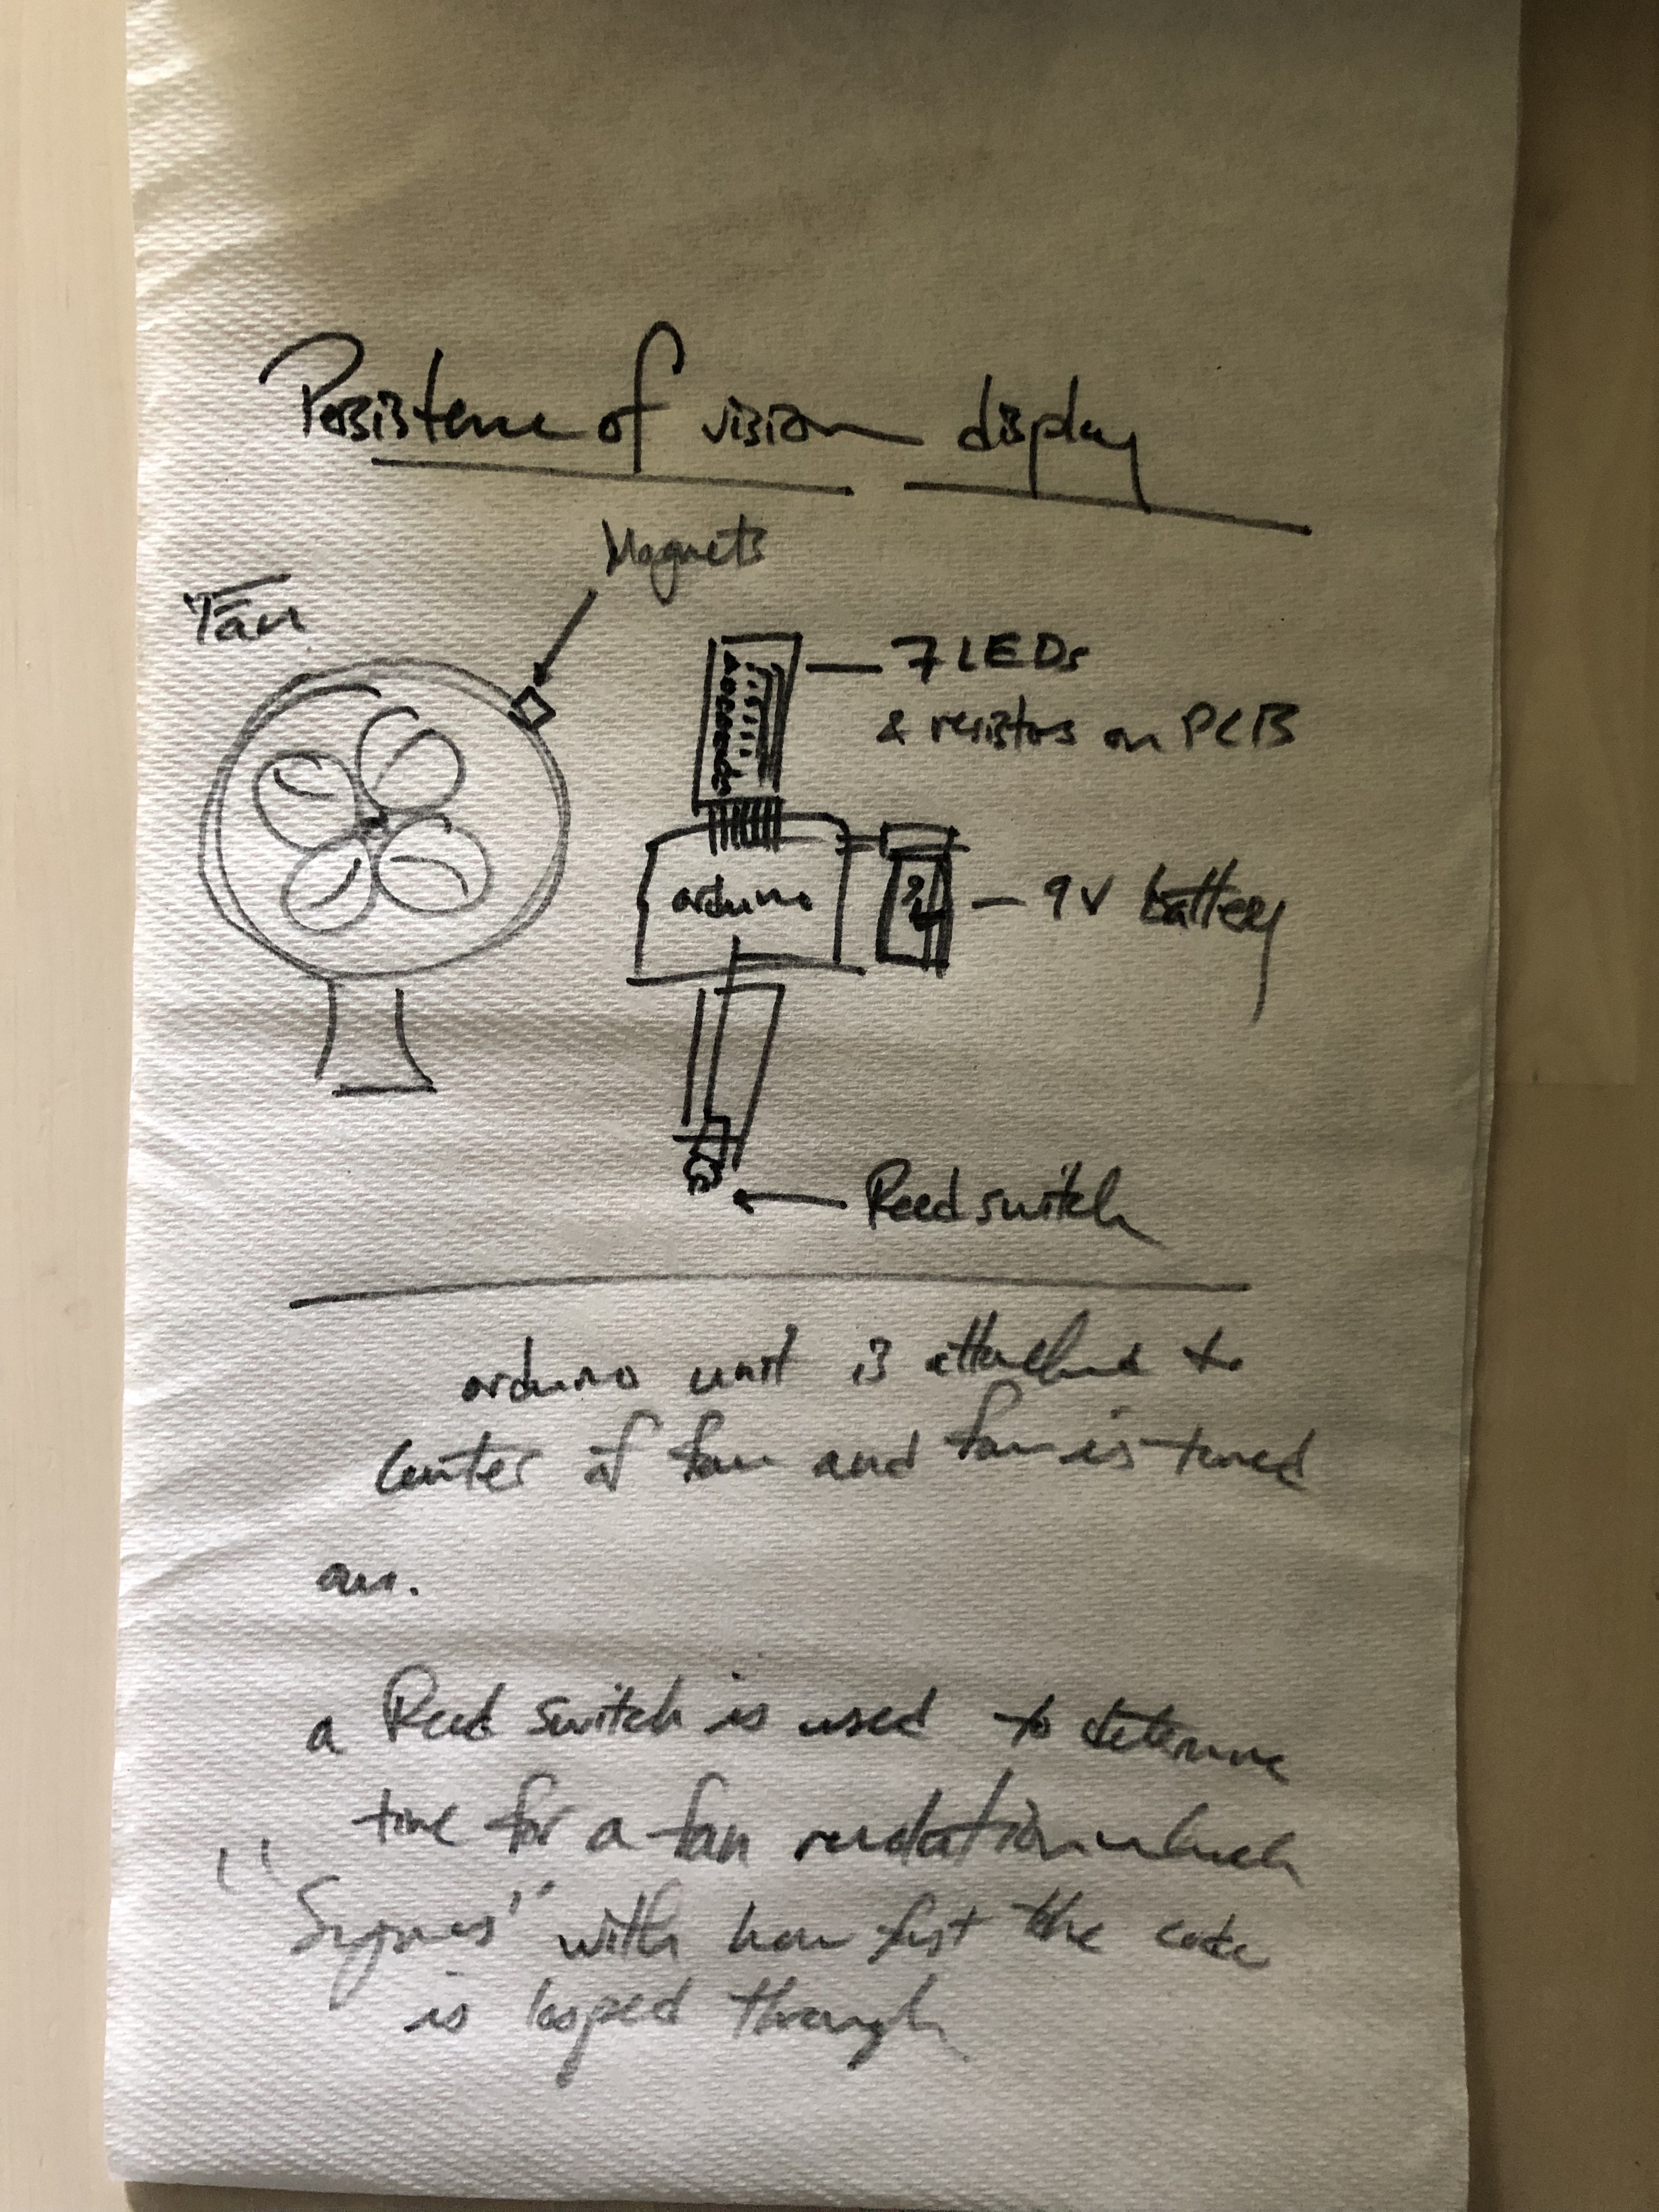 Persistence of vision display
Magnets
Fan
7 LEDs
& resistors on PCB
arduino
9V battery
Reed switch
arduino unit is attached to
center of fan and fan is turned
on.
a Reed switch is used to determine
time for a fan rotation which
"Syncs" with how fast the code
is looped through